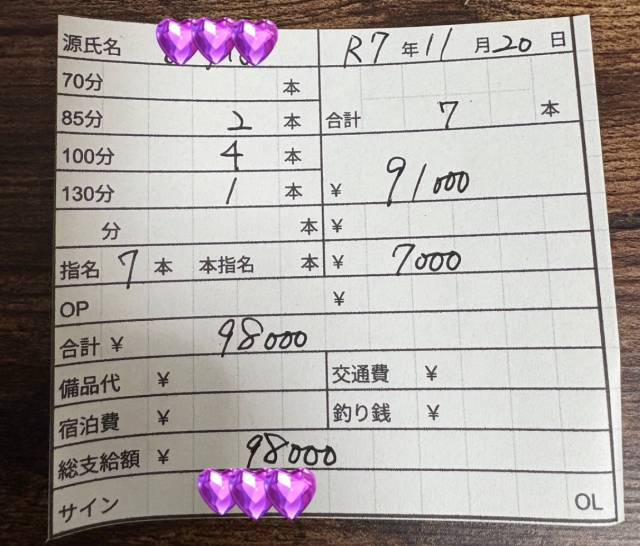 源氏名 R7年11月20日
70分 本
85分 2本 合計 7本
100分 4本
130分 1本 ¥ 91000
分 本 ¥
指名 7本 本指名 本 ¥ 7000
OP ¥
合計 ¥ 98000
備品代 ¥ 交通費 ¥
宿泊費 ¥ 釣り銭 ¥
総支給額 ¥ 98000
サイン OL